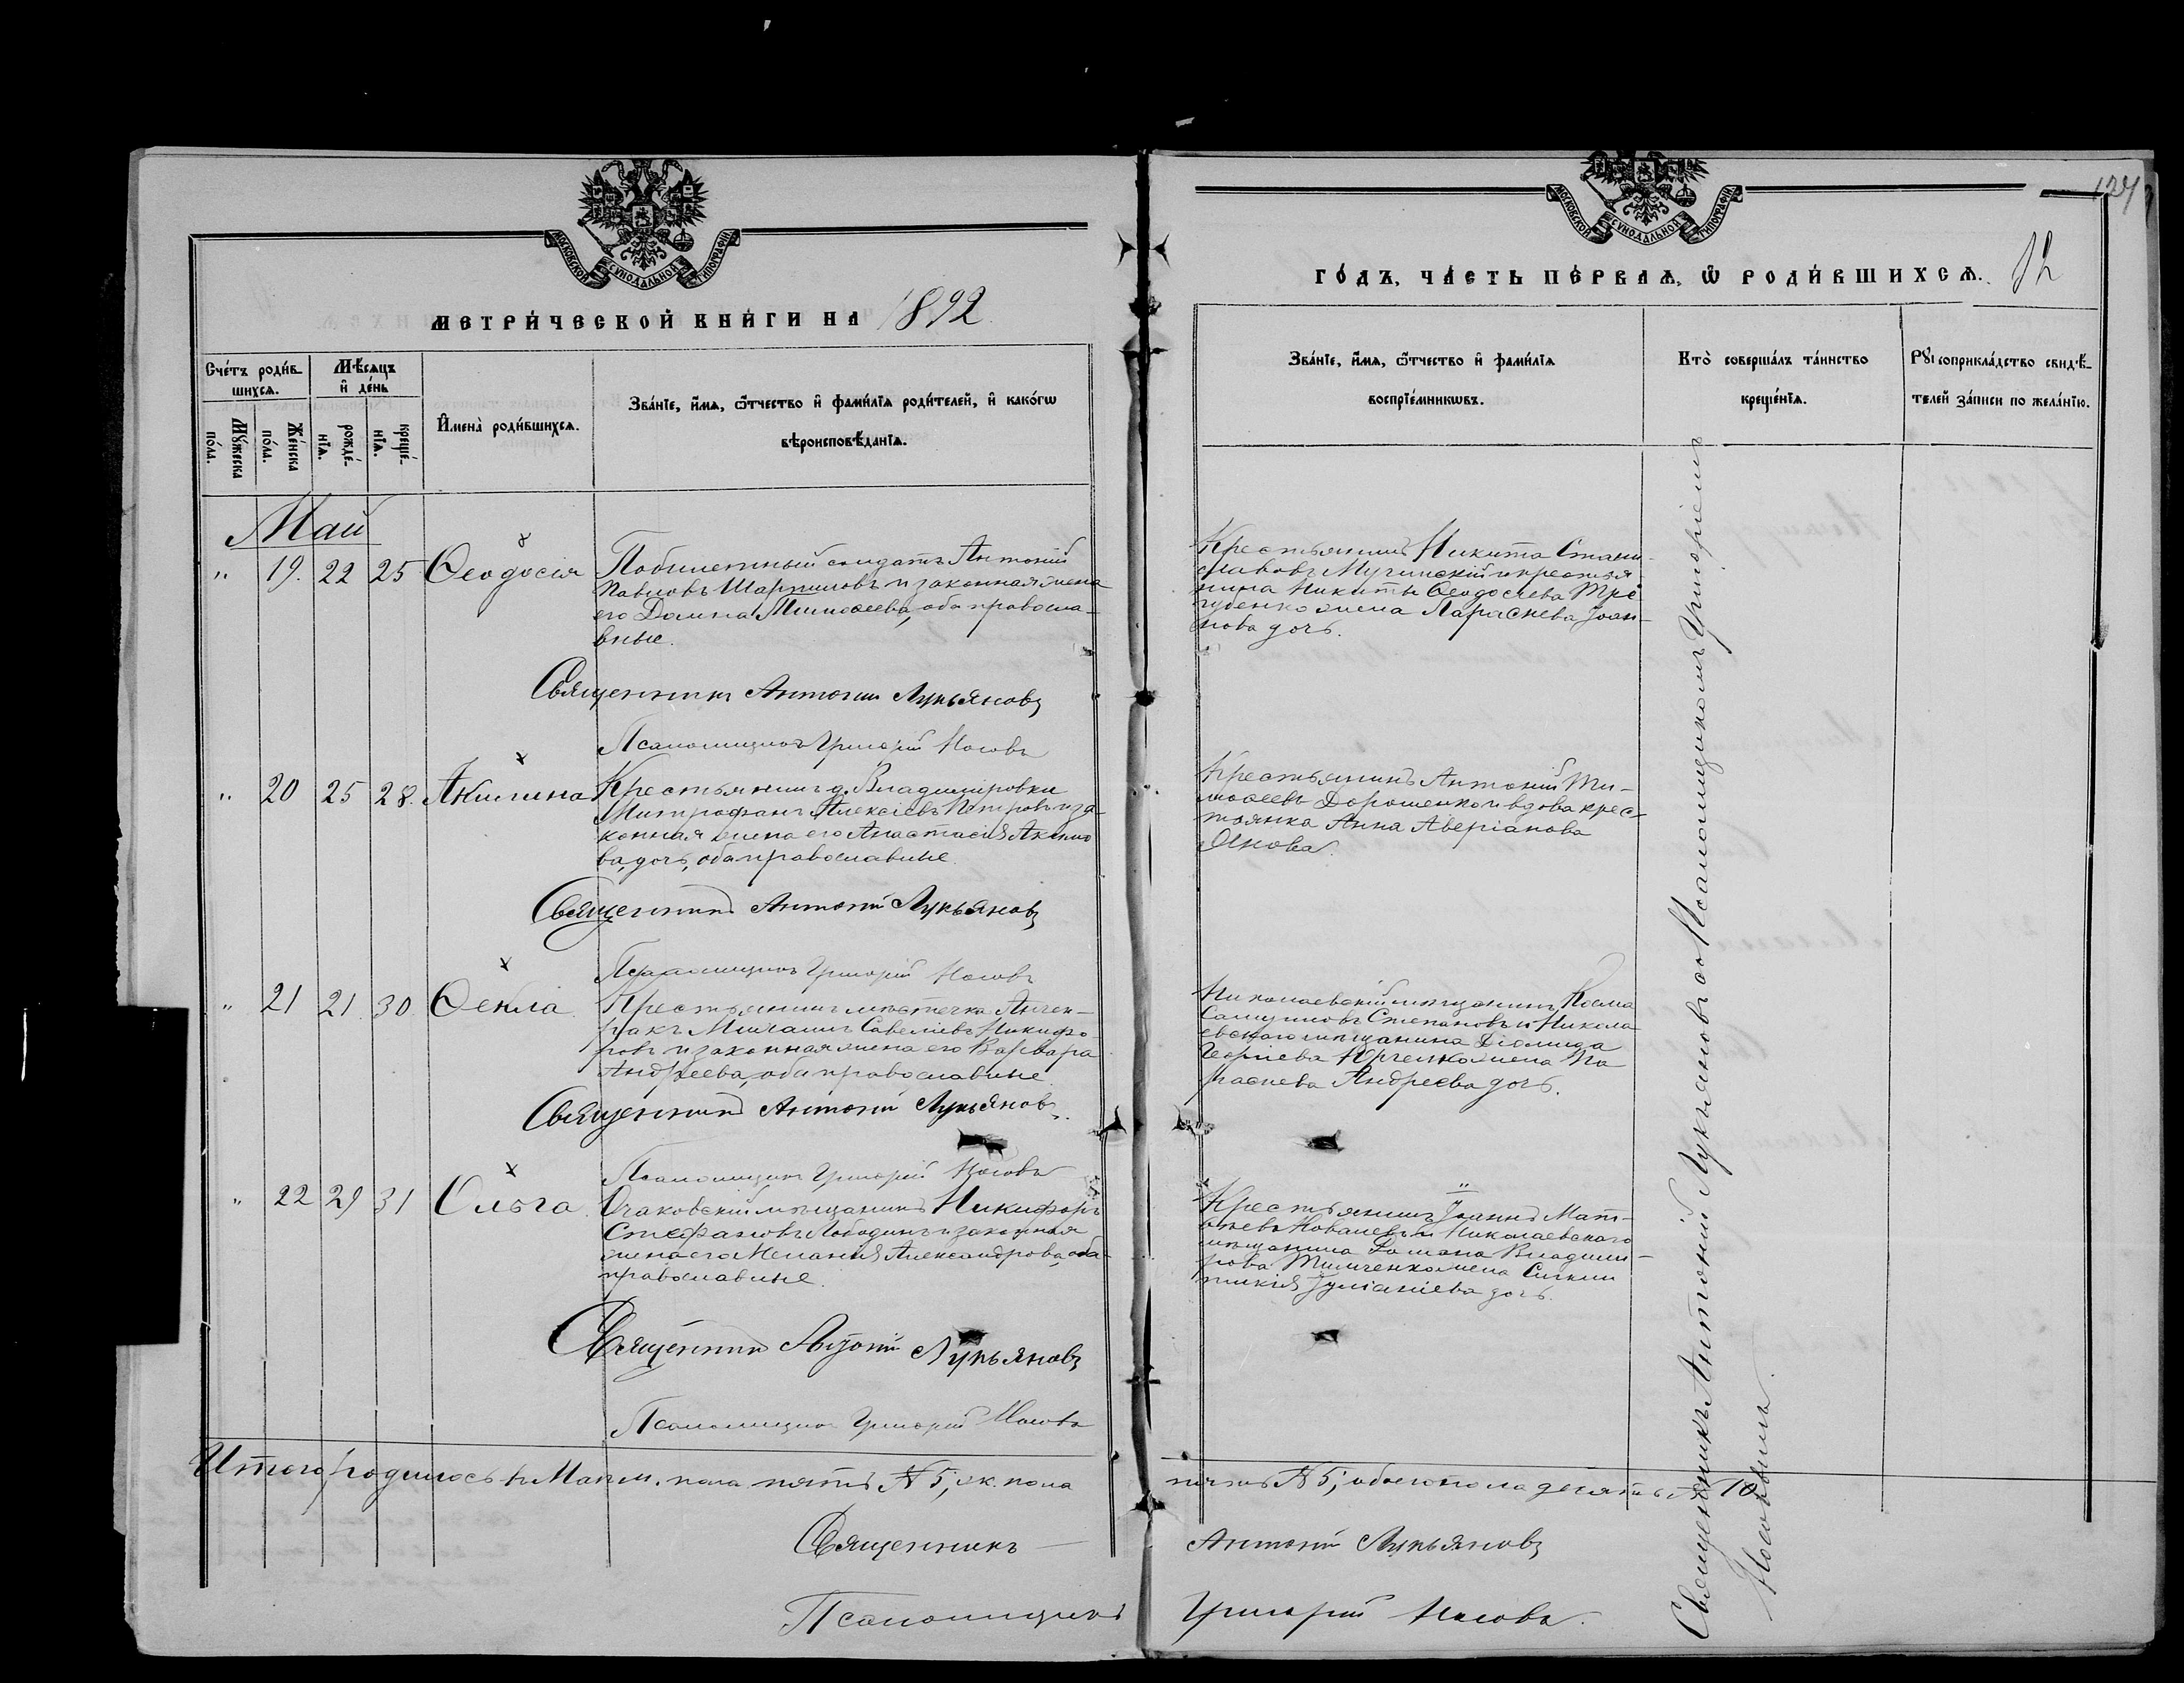 МОСКОВСКОЙ СѴНОДАЛЬНОЙ ТИПОГРАФІИ
МЕТРИ́ЧЕСКОЙ КНИ́ГИ НА 1892
Сче́тъ роди́в-
шихсѧ.
Мѣ́сѧцъ
и҆ де́нь
Мꙋ́жеска
по́ла.
Же́нска
по́ла.
рожде́-
нїѧ.
креще́-
нїѧ.
И҆мена̀ роди́вшихсѧ.
Зва́нїе, и҆́мѧ, ѻ҆́тчество и҆ фами́лїѧ роди́телей, и҆ како́гѡ
вѣроисповѣ́данїѧ.
Май
" 19. 22 25 Ѳеодосія
Побилетный солдатъ Антоній
Павловъ Шарпиловъ и законная жена
его Домна Тимоѳеева, оба правосла-
вные.
Священникъ Антоній Лукьяновъ
Псаломщикъ Григорій Носовъ
" 20 25 28. Акилина
Крестьянинъ д. Владиміровки
Митрофанъ Алексіевъ Петровъ и за-
конная жена его Анастасія Акимо
ва дочь, оба православные.
Священникъ Антоній Лукьяновъ
Псаломщикъ Григорій Носовъ
" 21 21 30 Ѳекла
Крестьянинъ мѣстечка Анчек-
ракъ Михаилъ Савеліевъ Никифо-
ровъ и законная жена его Варвара
Андреева, оба православные
Священникъ Антоній Лукьяновъ.
Псаломщикъ Григорій Носовъ
" 22 29 31 Ольга
Очаковскій мѣщанинъ Никифоръ
Стефановъ Лободинъ и законная
жена его Меланія Александрова, оба
православные.
Священникъ Антоній Лукьяновъ
Псаломщикъ Григорій Носовъ
Итого родилось въ Маѣ м. пола пять № 5, ж. пола
Священникъ
Псаломщикъ
124
МОСКОВСКОЙ СѴНОДАЛЬНОЙ ТИПОГРАФІИ
ГО́ДЪ, ЧА́СТЬ ПЕ́РВАѦ, Ѡ҆ РОДИ́ВШИХСѦ. 12
Зва́нїе, и҆́мѧ, ѻ҆́тчество и҆ фами́лїѧ
воспрїе́мникѡвъ.
Кто̀ соверша́лъ та́инство
креще́нїѧ.
Рꙋкоприкла́дство свидѣ́-
телей за́писи по жела́нїю.
Крестьянинъ Никита Стани-
славовъ Мучинскій и крестья
нина Никиты Ѳеодосіева Три
губенко жена Параскева Іоан-
нова дочь.
Крестьянинъ Антоній Ти-
моѳеевъ Дорошенко и вдова крес-
тьянка Анна Аверіанова
Янова.
Николаевскій мѣщанинъ Косма
Самуиловъ Степановъ и Никола-
евскаго мѣщанина Діомида
Георгіева Юрченко жена Па
раскева Андреева дочь.
Крестьянинъ Іоаннъ Мат-
ѳеевъ Ковалевъ и Николаевскаго
мѣщанина Романа Владими-
рова Тимченко жена Синкли
тикія Іуліаніева дочь.
Священникъ Антоній Лукьяновъ со Псаломщикомъ Григоріемъ
Носовымъ.
пять № 5, обоего пола десять № 10
Антоній Лукьяновъ
Григорій Носовъ.